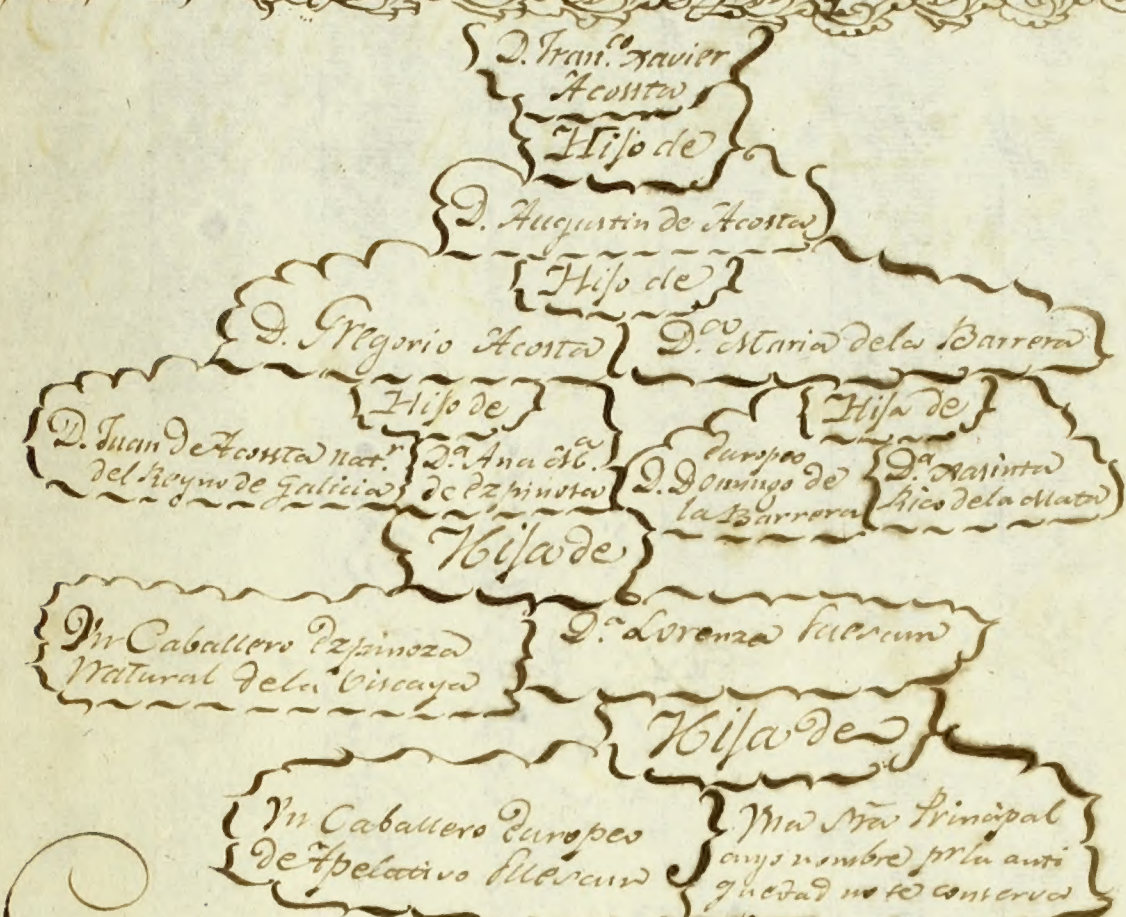 D. Fran.co Xavier
Acossta
Hijo de
D. Augustin de Acosta
Hijo de
D. Gregorio Acosta
D.a Maria dela Barrera
Hijo de
D. Juan de Acossta nat.r
del Reyno de Galicia
D.a Ana M.a
de Ezpinosa
Hija de
europeo
D. Domingo de
la Barrera
D.a Xasinta
Rico dela Mata
Hija de
Vn Caballero Ezpinoza
Natural dela Viscaya
D.a Lorenza
Hija de
Vn Caballero Europeo
de Apelativo
Vna Sra Principal
cuyo nombre pr la anti
guedad no se conserva